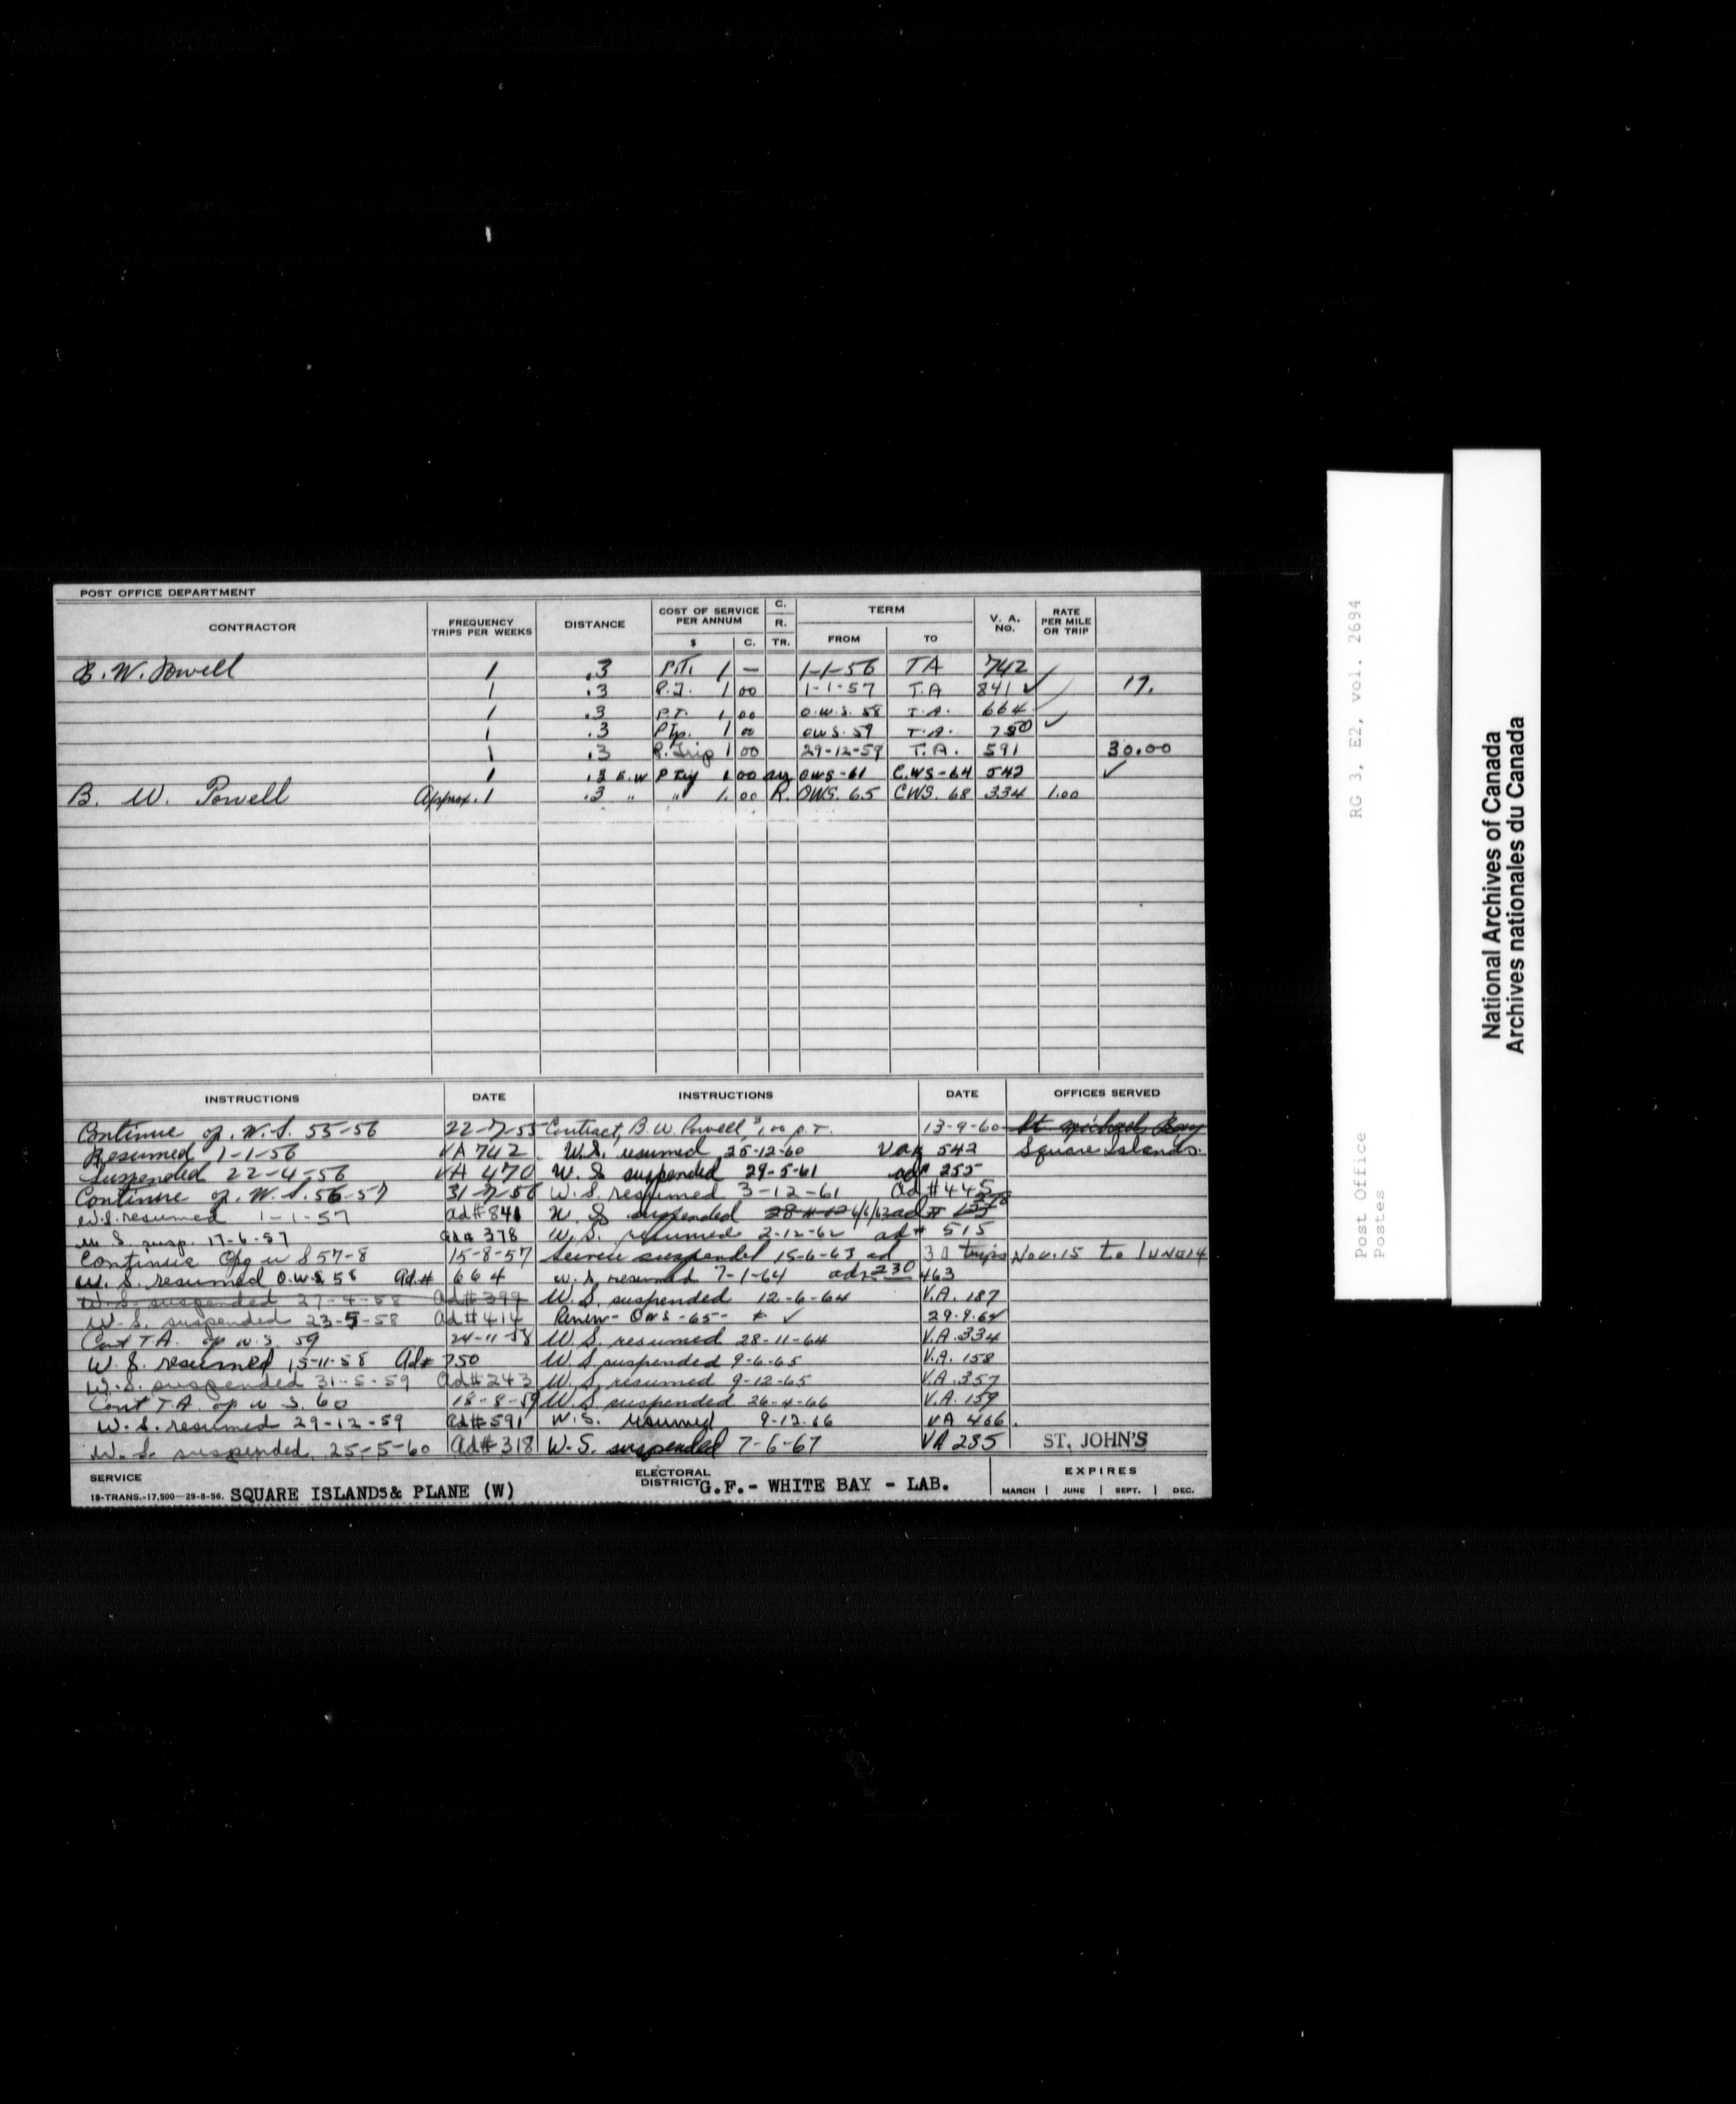 POST OFFICE DEPARTMENT
CONTRACTOR FREQUENCY TRIPS PER WEEKS DISTANCE COST OF SERVICE PER ANNUM $ C. C. R. TR. TERM FROM TO V. A. NO. RATE PER MILE OR TRIP
B. W. Powell 1 .3 P.T. 1 — 1-1-56 TA 742
1 .3 P.T. 1 00 1-1-57 T.A 841 ✓ 17.
1 .3 P.T. 1 00 O.W.S. 58 T.A. 664
1 .3 P Tp. 1 00 OWS. 59 T.A. 750 ✓
1 .3 P. Trip 1 00 29-12-59 T.A. 591 30.00
1 .3 E.W P Trip 1 00 OWS-61 C.WS-64 542 ✓
B. W. Powell Approx. 1 .3 " " 1. 00 R. OWS. 65 CWS. 68 334 1.00
INSTRUCTIONS DATE INSTRUCTIONS DATE OFFICES SERVED
Continue op. W.S. 55-56 22-7-55 Contract, B. W. Powell $1.00 p.T. 13-9-60 St Michael Bay
Resumed 1-1-56 VA 742 W.S. resumed 25-12-60 542 Square Islands.
Suspended 22-4-56 VA 470 W.S suspended 29-5-61 ad# 255
Continue op. W.S. 56-57 31-7-56 W.S. resumed 3-12-61 Ad #445
W.S. resumed 1-1-57 ad# 841 W.S suspended 6/6/62 ad #
W.S. susp. 17-6-57 ad# 378 W.S. resumed 2-12-62 ad# 515
Continue Opg w S 57-8 15-8-57 Service suspended 15-6-63 ad 230 30 trips Nov. 15 to June 14
W.S. resumed O.W.S 58 Ad.# 664 W.S. resumed 7-1-64 ad# 463
W.S. suspended 27-4-58 Ad# 399 W.S. suspended 12-6-64 V.A. 187
W.S. suspended 23-5-58 Ad# 414 Renew- OWS-65- * ✓ 29-9-64
Cont T.A. op w.s. 59 24-11-58 W.S. resumed 28-11-64 V.A. 334
W.S. resumed 15-11-58 Ad# 750 W.S suspended 9-6-65 V.A. 158
W.S. suspended 31-5-59 Ad# 243 W.S. resumed 9-12-65 V.A. 357
Cont T.A. op w S. 60 18-8-59 W.S suspended 26-4-66 V.A. 159
W.S. resumed 29-12-59 Ad# 591 W.S. resumed 9-12-66 VA 466.
W.S. suspended, 25-5-60 Ad# 318 W.S. suspended 7-6-67 VA 285 ST. JOHN'S
SERVICE ELECTORAL DISTRICT EXPIRES
18-TRANS.-17,500—29-8-56. SQUARE ISLANDS & PLANE (W) G.F.- WHITE BAY - LAB. MARCH | JUNE | SEPT. | DEC.
Post Office RG 3, E2, vol. 2694
Postes
National Archives of Canada
Archives nationales du Canada